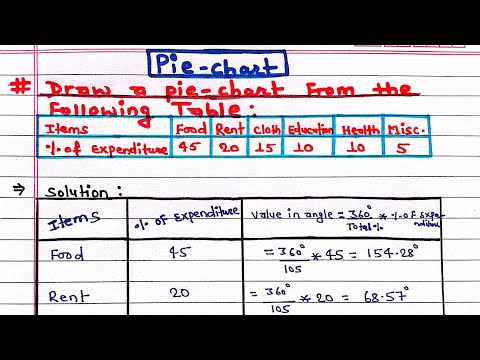 Pie-chart
# Draw a pie-chart from the
following Table:
Items Food Rent Cloth Education Health Misc.
% of Expenditure 45 20 15 10 10 5
⇒ Solution:
Items % of Expenditure Value in angle = 360°/Total% * % of Expenditure
Food 45 = 360°/105 * 45 = 154.28°
Rent 20 = 360°/105 * 20 = 68.57°